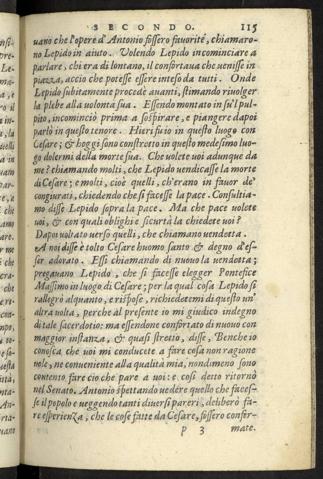 SECONDO. 115
uano che l'opere d'Antonio fossero fauorite, chiamaro-
no Lepido in aiuto. Volendo Lepido incominciare a
parlare, chi era di lontano, il confortaua che uenisse in
piazza, accio che potesse essere inteso da tutti. Onde
Lepido subitamente procede auanti, stimando riuolger
la plebe alla uolonta sua. Essendo montato in su'l pul-
pito, incominciò prima a sospirare, e piangere dapoi
parlò in questo tenore. Hieri fu io in questo luogo con
Cesare; & hoggi sono constretto in questo medesimo luo-
go dolermi della morte sua. Che uolete uoi adunque da
me? chiamando molti, che Lepido uendicasse la morte
di Cesare; e molti, cioè quelli, ch'erano in fauor de'
congiurati, chiedendo che si facesse la pace. Consultia-
mo disse Lepido sopra la pace. Ma che pace uolete
uoi, & con quali oblighi e sicurtà la chiedete uoi?
Dapoi uoltato uerso quelli, che chiamano uendetta.
A noi disse è tolto Cesare huomo santo & degno d'es-
ser adorato. Essi chiamando di nuouo la uendetta;
pregauano Lepido, che si facesse elegger Pontefice
Massimo in luogo di Cesare; per la qual cosa Lepido si
rallegrò alquanto, e rispose, richiedetemi di questo un'
altra uolta, perche al presente io mi giudico indegno
di tale sacerdotio: ma essendone confortato di nuouo con
maggior instanza, & quasi stretio, disse, Benche io
conosca che uoi mi conducete a fare cosa non ragione
uole, ne conueniente alla qualità mia, nondimeno sono
contento fare cio che pare a uoi: e cosi detto ritornò
nel Senato. Antonio aspettando uedere quello che faces-
se il popolo e ueggendo tanti diuersi pareri, deliberò fa-
re esperienza, che le cose fatte da Cesare, fossero confer-
P 3 mate.